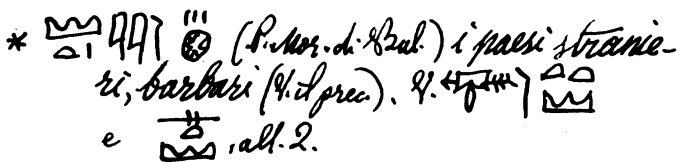 * (P. Mor. di Bul.) i paesi stranie-
ri, barbari (V. il prec.). V.
e , all. 2.